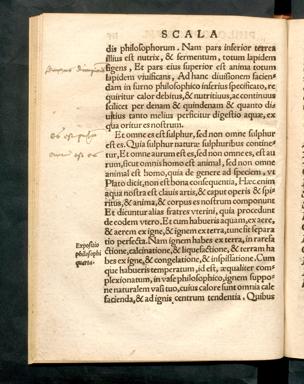 SCALA
dis philosophorum. Nam pars inferior terrea
illius est nutrix, & fermentum, totum lapidem
figens, Et pars eius superior est anima totum
lapidem viuificans, Ad hanc diuisionem facien-
dam in furno philosophico inferius specificato, re
quiritur calor debitus, & nutritiuus, ac continuus
scilicet per denam & quindenam & quanto diu
ultius tanto melius perficitur digestio aquæ, ex
qua oritur res nostrum.
Et omne æs est sulphur, sed non omne sulphur
est æs. Quia sulphur naturæ sulphuribus contine-
tur, Et omne aurum est æs, sed non omne æs, est au
rum, sicut omnis homo est animal, sed non omne
animal est homo, quia de genere ad speciem, vt
Plato dicit, non est bona consequentia, Hæc enim
aqua nostra est clauis artis, & caput operis & spi-
ritus, & anima, & corpus es nostrum componunt
Et dicuntur alias fratres vterini, quia procedunt
de eodem vtero. Et cum habueris aquam, ex aere,
& aerem ex igne, & ignem ex terra, tunc sit separa
tio perfecta. Nam ignem habes ex terra, in rarefa
ctione, calcinatione, & liquefactione, & terram ha
bes ex igne, & congelatione, & inspissatione. Cum
Expositio
philosophi
que habueris temperatum, id est, æqualiter com-
plexionatum, in vase philosophico, ignem suppo
ne naturalem vasi tuo, cuius calore sunt omnia cale
facienda, & ad ignis centrum tendentia. Quibus